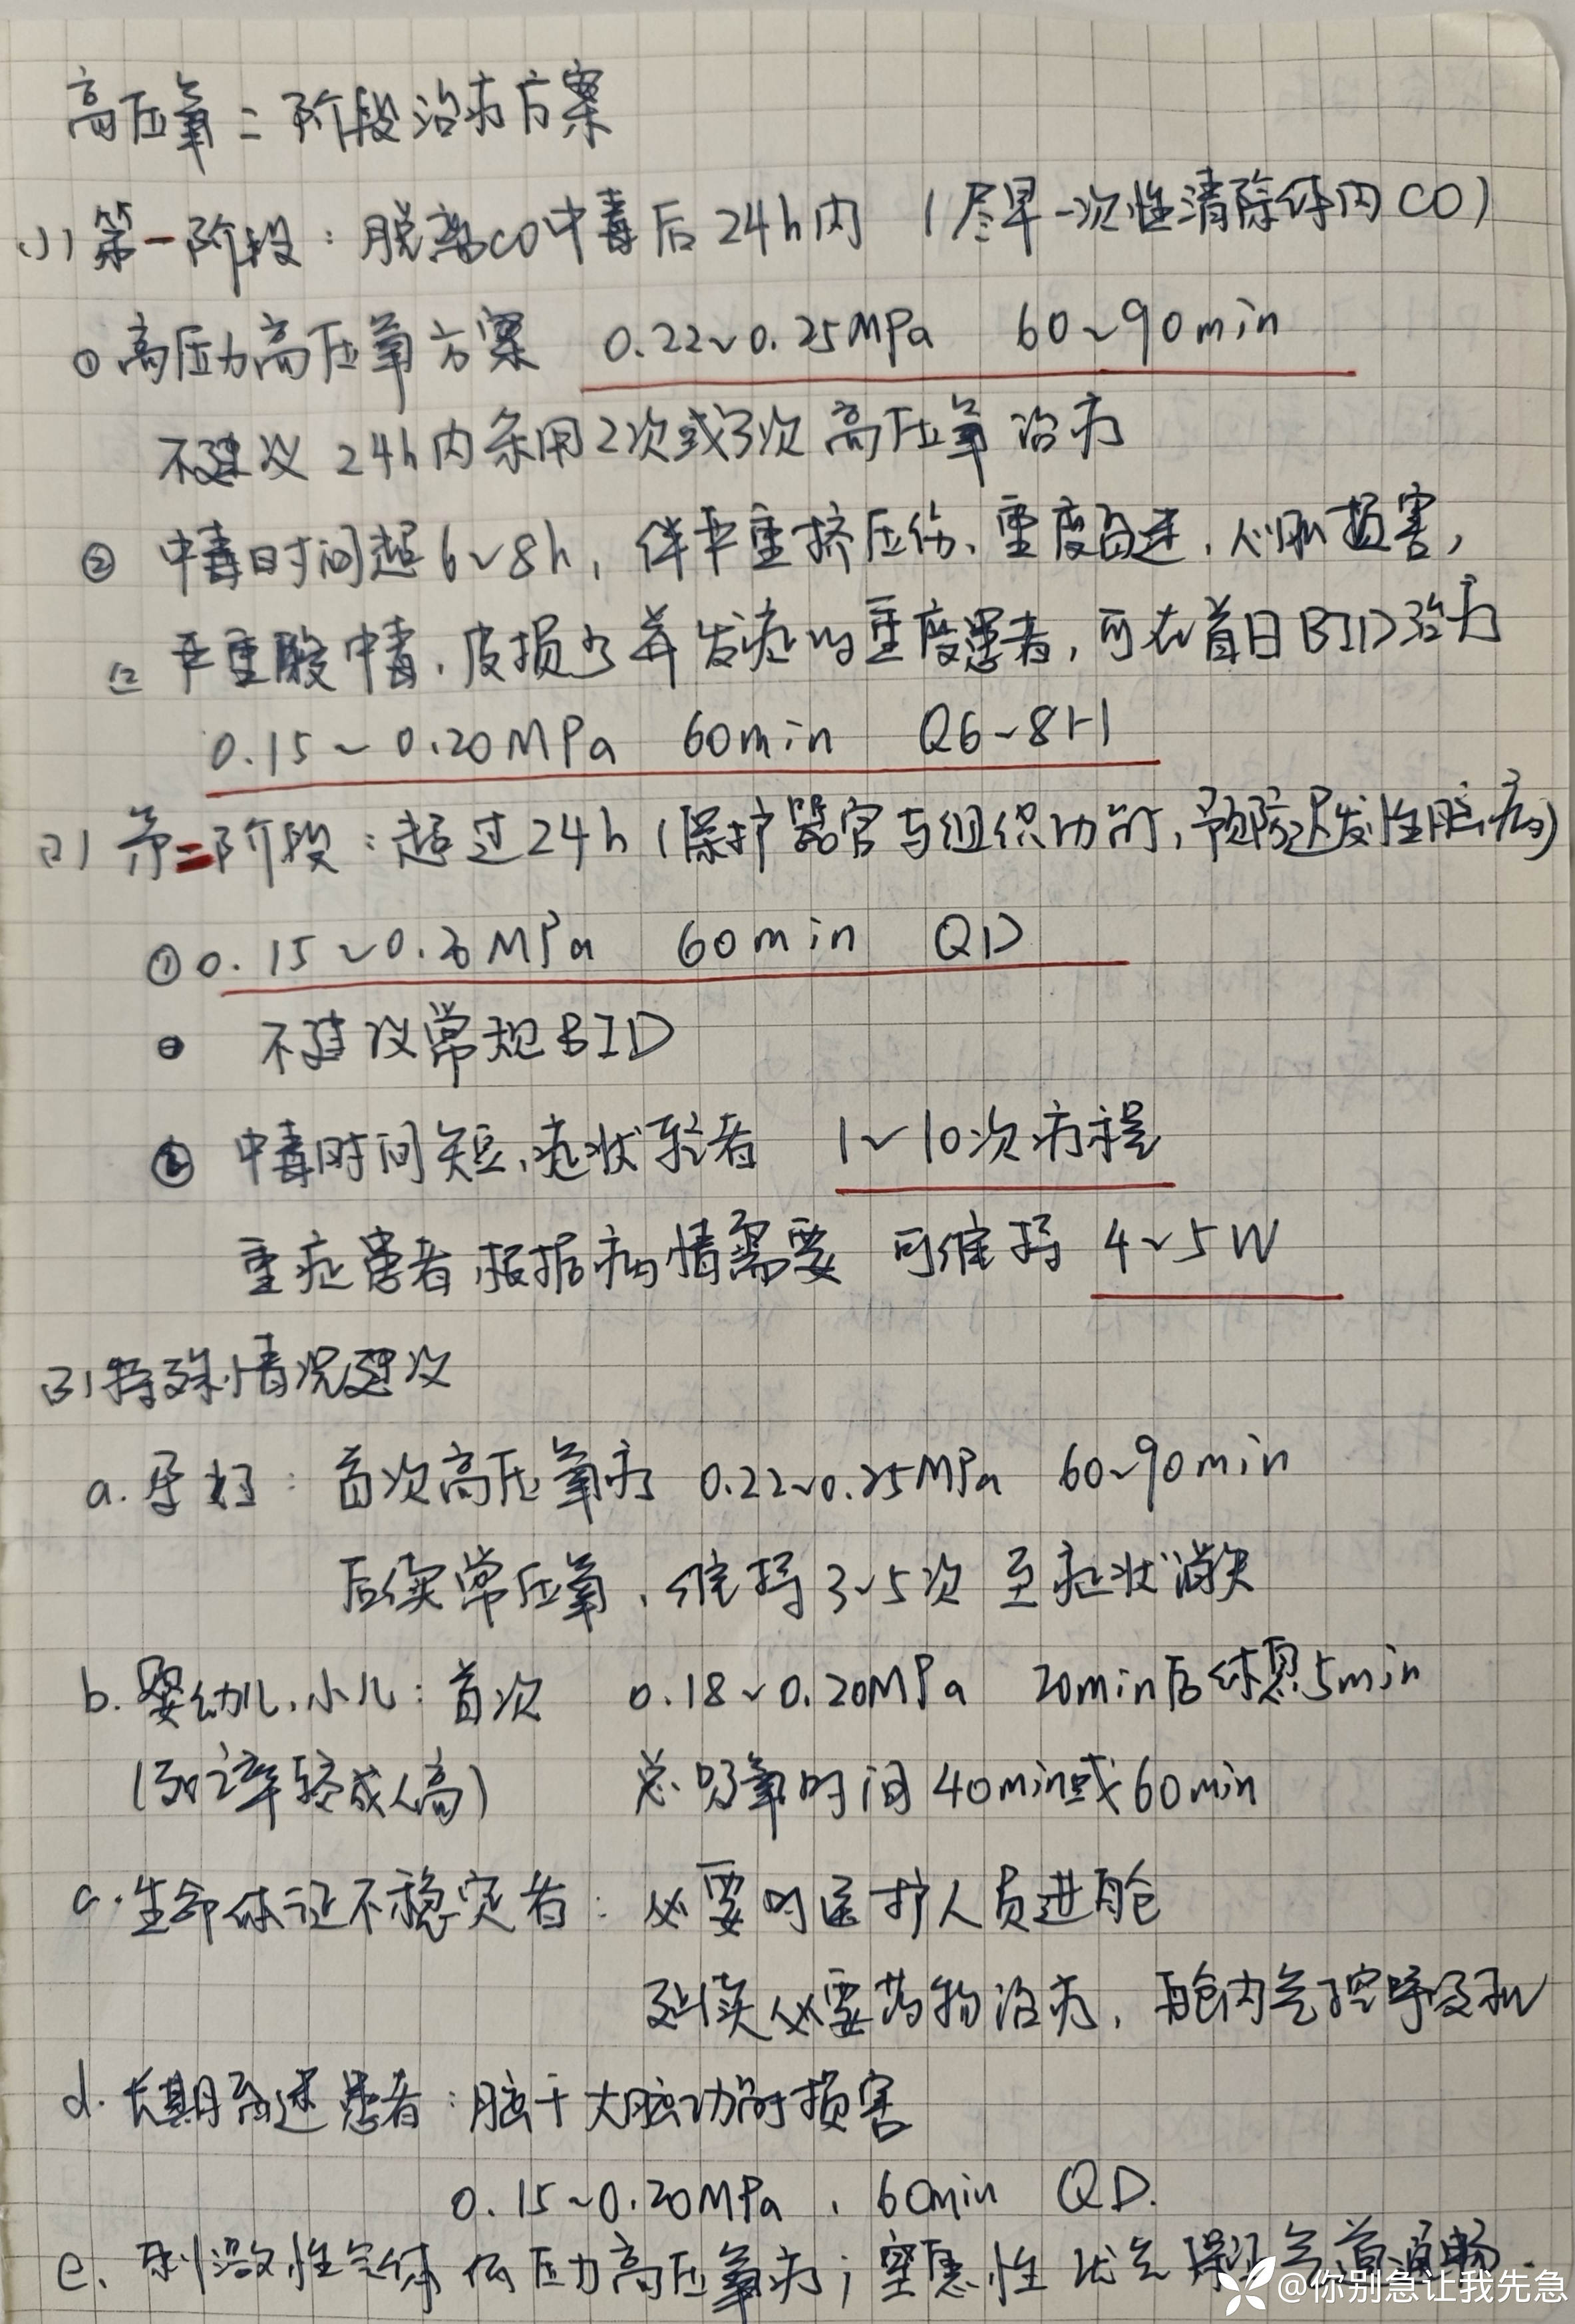 高压氧二阶段治疗方案
(1) 第一阶段：脱离CO中毒后24h内 (尽早一次性清除体内CO)
① 高压力高压氧方案 0.22~0.25MPa 60~90min
不建议24h内采用2次或3次高压氧治疗
② 中毒时间超6~8h，伴严重挤压伤、重度昏迷、心肌损害，
严重酸中毒、皮损多并发症的重度患者，可在首日BID治疗
0.15~0.20MPa 60min Q6~8H
(2) 第二阶段：超过24h (保护器官与组织功能，预防迟发性脑病)
① 0.15~0.20MPa 60min QD
不建议常规BID
② 中毒时间短、症状轻者 1~10次疗程
重症患者根据病情需要 可维持 4~5W
(3) 特殊情况建议
a. 孕妇：首次高压氧疗 0.22~0.25MPa 60~90min
后续常压氧、维持3~5次 至症状消失
b. 婴幼儿、小儿：首次 0.18~0.20MPa 20min后休息5min
(死亡率较成人高) 总吸氧时间40min或60min
c. 生命体征不稳定者：必要时医护人员进舱
延续必要药物治疗，舱内气控呼吸机
d. 长期昏迷患者：脑干大脑功能损害
0.15~0.20MPa、60min QD.
e. 刺激性气体 低压力高压氧疗；窒息性 优先保证气道通畅.
@你别急让我先急